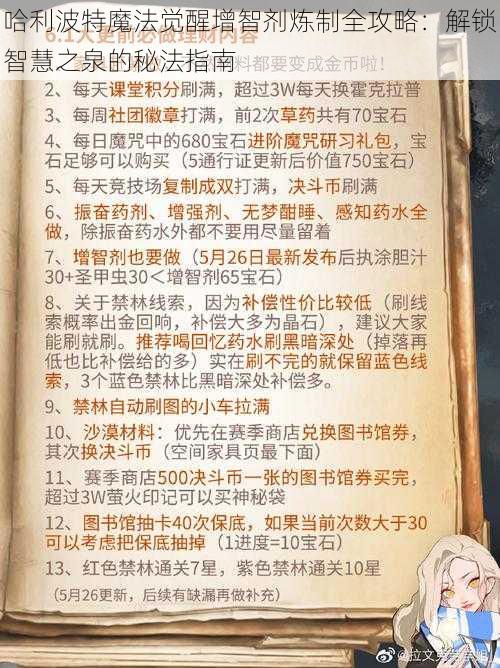 哈利波特魔法觉醒增智剂炼制全攻略：解锁
智慧之泉的秘法指南
6.1大更前必做理财内容
料都要变成金币啦！
2、每天课堂积分刷满，超过3W每天换霍克拉普
3、每周社团徽章打满，前2次草药共有70宝石
4、每日魔咒中的680宝石进阶魔咒研习礼包，宝
石足够可以购买（5通行证更新后价值750宝石）
5、每天竞技场复制成双打满，决斗币刷满
6、振奋药剂、增强剂、无梦酣睡、感知药水全
做，除振奋药水外都不要用尽量留着
7、增智剂也要做（5月26日最新发布后执涂胆汁
30+圣甲虫30＜增智剂65宝石）
8、关于禁林线索，因为补偿性价比较低（刷线
索概率出金回响，补偿大多为晶石），建议大家
能刷就刷。推荐喝回忆药水刷黑暗深处（掉落再
低也比补偿给的多）实在刷不完的就保留蓝色线
索，3个蓝色禁林比黑暗深处补偿多。
9、禁林自动刷图的小车拉满
10、沙漠材料：优先在赛季商店兑换图书馆券，
其次换决斗币（空间家具页最下面）
11、赛季商店500决斗币一张的图书馆券买完，
超过3W萤火印记可以买神秘袋
12、图书馆抽卡40次保底，如果当前次数大于30
可以考虑把保底抽掉（1进度=10宝石）
13、红色禁林通关7星，紫色禁林通关10星
（5月26更新，后续有缺漏再做补充）
@拉文克